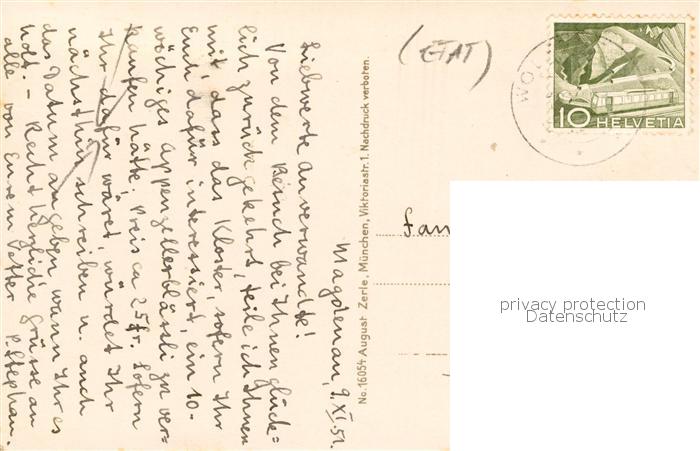 Magdenau, 9. XI. 51.
Liebwerte Anverwandte!
Von dem Besuch bei Ihnen glück=
lich zurückgekehrt, teile ich Ihnen
mit, dass das Kloster, sofern Ihr
Euch dafür interessiert, ein 10-
wöchiges Appenzellerblässli zu ver-
kaufen hätte. Preis ca 25 fr. Sofern
Ihr dafür wäret, würdet Ihr
nächsthin schreiben u. auch
das Datum angeben wann Ihr es
holt. - Recht herzliche Grüsse an
alle von Eurem Vetter
P. Stephan.
No. 16054 August Zerle, München, Viktoriastr. 1. Nachdruck verboten.
(ETAT)
WOL
10 HELVETIA
Fam
privacy protection
Datenschutz